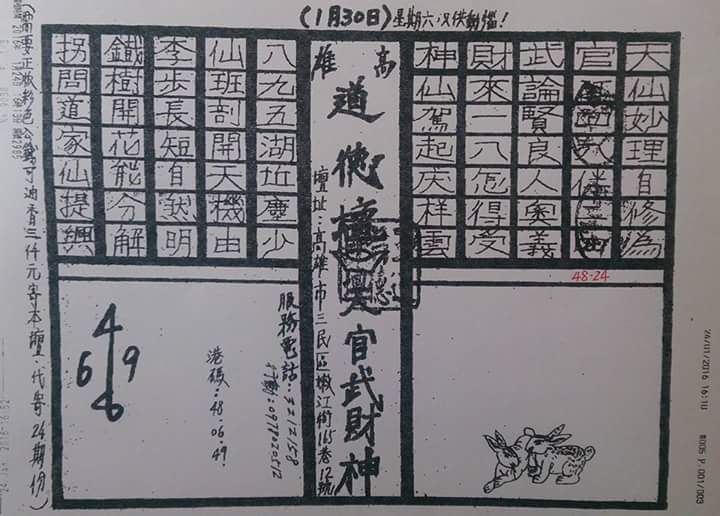 (1月30日)星期六
天仙妙理自修為
官
武論賢良人奧義
財來一八怎得受
神仙駕起庆样雲
48-24
高雄
道德壇 官武財神
壇址:高雄市三民區嫩江街165巷12號
八九五湖坵塵少
仙班剖開天機由
李步長短自然明
鐵樹開花能分解
拐問道家仙提興
服務電話:3212158
行動:0978020512
港碼:48.06.49
4
6 9
6
(需要正版彩色 可油香三仟元寄本壇.代寄24期份)
26/01/2016 16:10
#005 P.001/003